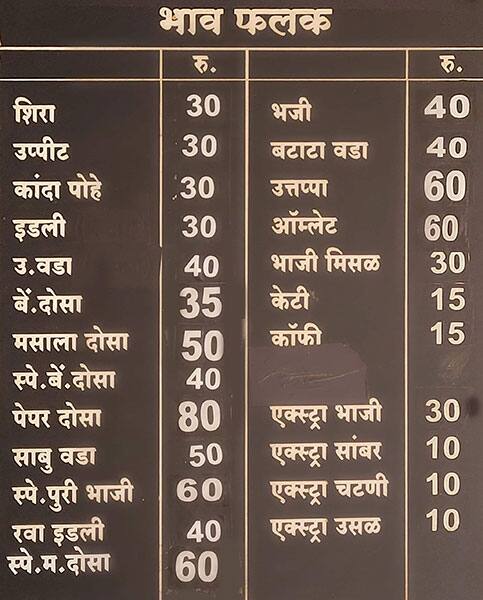 भाव फलक
रु.
शिरा 30
उप्पीट 30
कांदा पोहे 30
इडली 30
उ.वडा 40
बें.दोसा 35
मसाला दोसा 50
स्पे.बें.दोसा 40
पेपर दोसा 80
साबु वडा 50
स्पे.पुरी भाजी 60
रवा इडली 40
स्पे.म.दोसा 60
रु.
भजी 40
बटाटा वडा 40
उत्तप्पा 60
ऑम्लेट 60
भाजी मिसळ 30
केटी 15
कॉफी 15
एक्स्ट्रा भाजी 30
एक्स्ट्रा सांबर 10
एक्स्ट्रा चटणी 10
एक्स्ट्रा उसळ 10